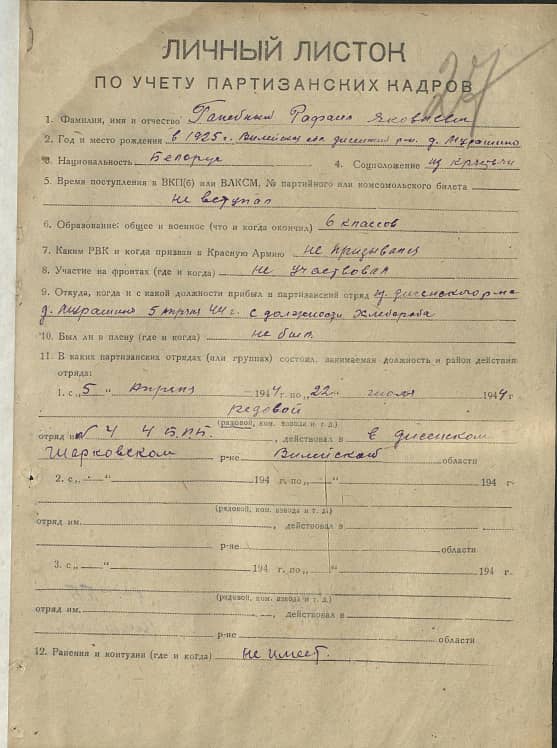 27
ЛИЧНЫЙ ЛИСТОК
ПО УЧЕТУ ПАРТИЗАНСКИХ КАДРОВ
1. Фамилия, имя и отчество Рафаил Яковлевич
2. Год и место рождения в 1925 г. Вилейская обл дисенский р-н. д. Мурашино
3. Национальность Белорус 4. Соцположение из крестьян
5. Время поступления в ВКП(б) или ВЛКСМ, № партийного или комсомольского билета
не вступал
6. Образование: общее и военное (что и когда окончил) 6 классов
7. Каким РВК и когда призван в Красную Армию не призывался
8. Участие на фронтах (где и когда) не участвовал
9. Откуда, когда и с какой должности прибыл в партизанский отряд из дисенского р-на
д. Мурашино 5 апреля 44 г. с должности хлебороба
10. Был ли в плену (где и когда) не был
11. В каких партизанских отрядах (или группах) состоял, занимаемая должность и район действия
отряда:
1. с „5 " апреля 1944 г. по „22 " июля 1944 г
редовой
(рядовой, ком. взвода и т. д.)
отряд им № 4 4 Б.П.Б. , действовал в в дисенском
Шарковском р-не Вилейской области
2. с „ " 194 г. по „ " 194 г.
(рядовой, ком. взвода и т. д.)
отряд им. , действовал в
р-не области
3. с „ " 194 г. по „ " 194 г.
(рядовой, ком. взвода и т. д.)
отряд им. , действовал в
р-не области
12. Ранения и контузии (где и когда) не имеет.